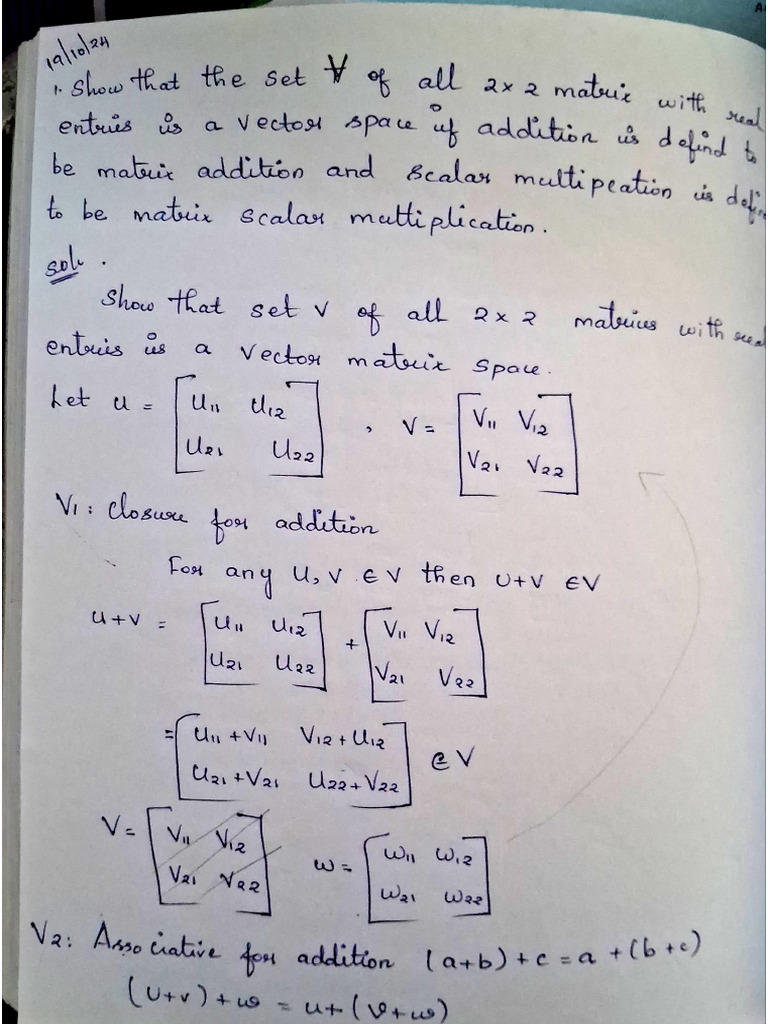 19/10/24
1. Show that the set V of all 2x2 matrix with real
entries is a vector space if addition is defind to
be matrix addition and scalar multipcation is defin
to be matrix scalar multiplication.
soln.
Show that set V of all 2x2 matrices with real
entries is a vector matrix space.
Let u = [U11 U12 , V = [V11 V12
U21 U22] V21 V22]
V1: Closure for addition
For any u, v ∈ V then u+v ∈ V
u+v = [U11 U12 + [V11 V12
U21 U22] V21 V22]
= [U11+V11 V12+U12
U21+V21 U22+V22] ∈ V
V = [V11 V12 w = [w11 w12
V21 V22] w21 w22]
V2: Associative for addition (a+b)+c = a+(b+c)
(u+v)+w = u+(v+w)